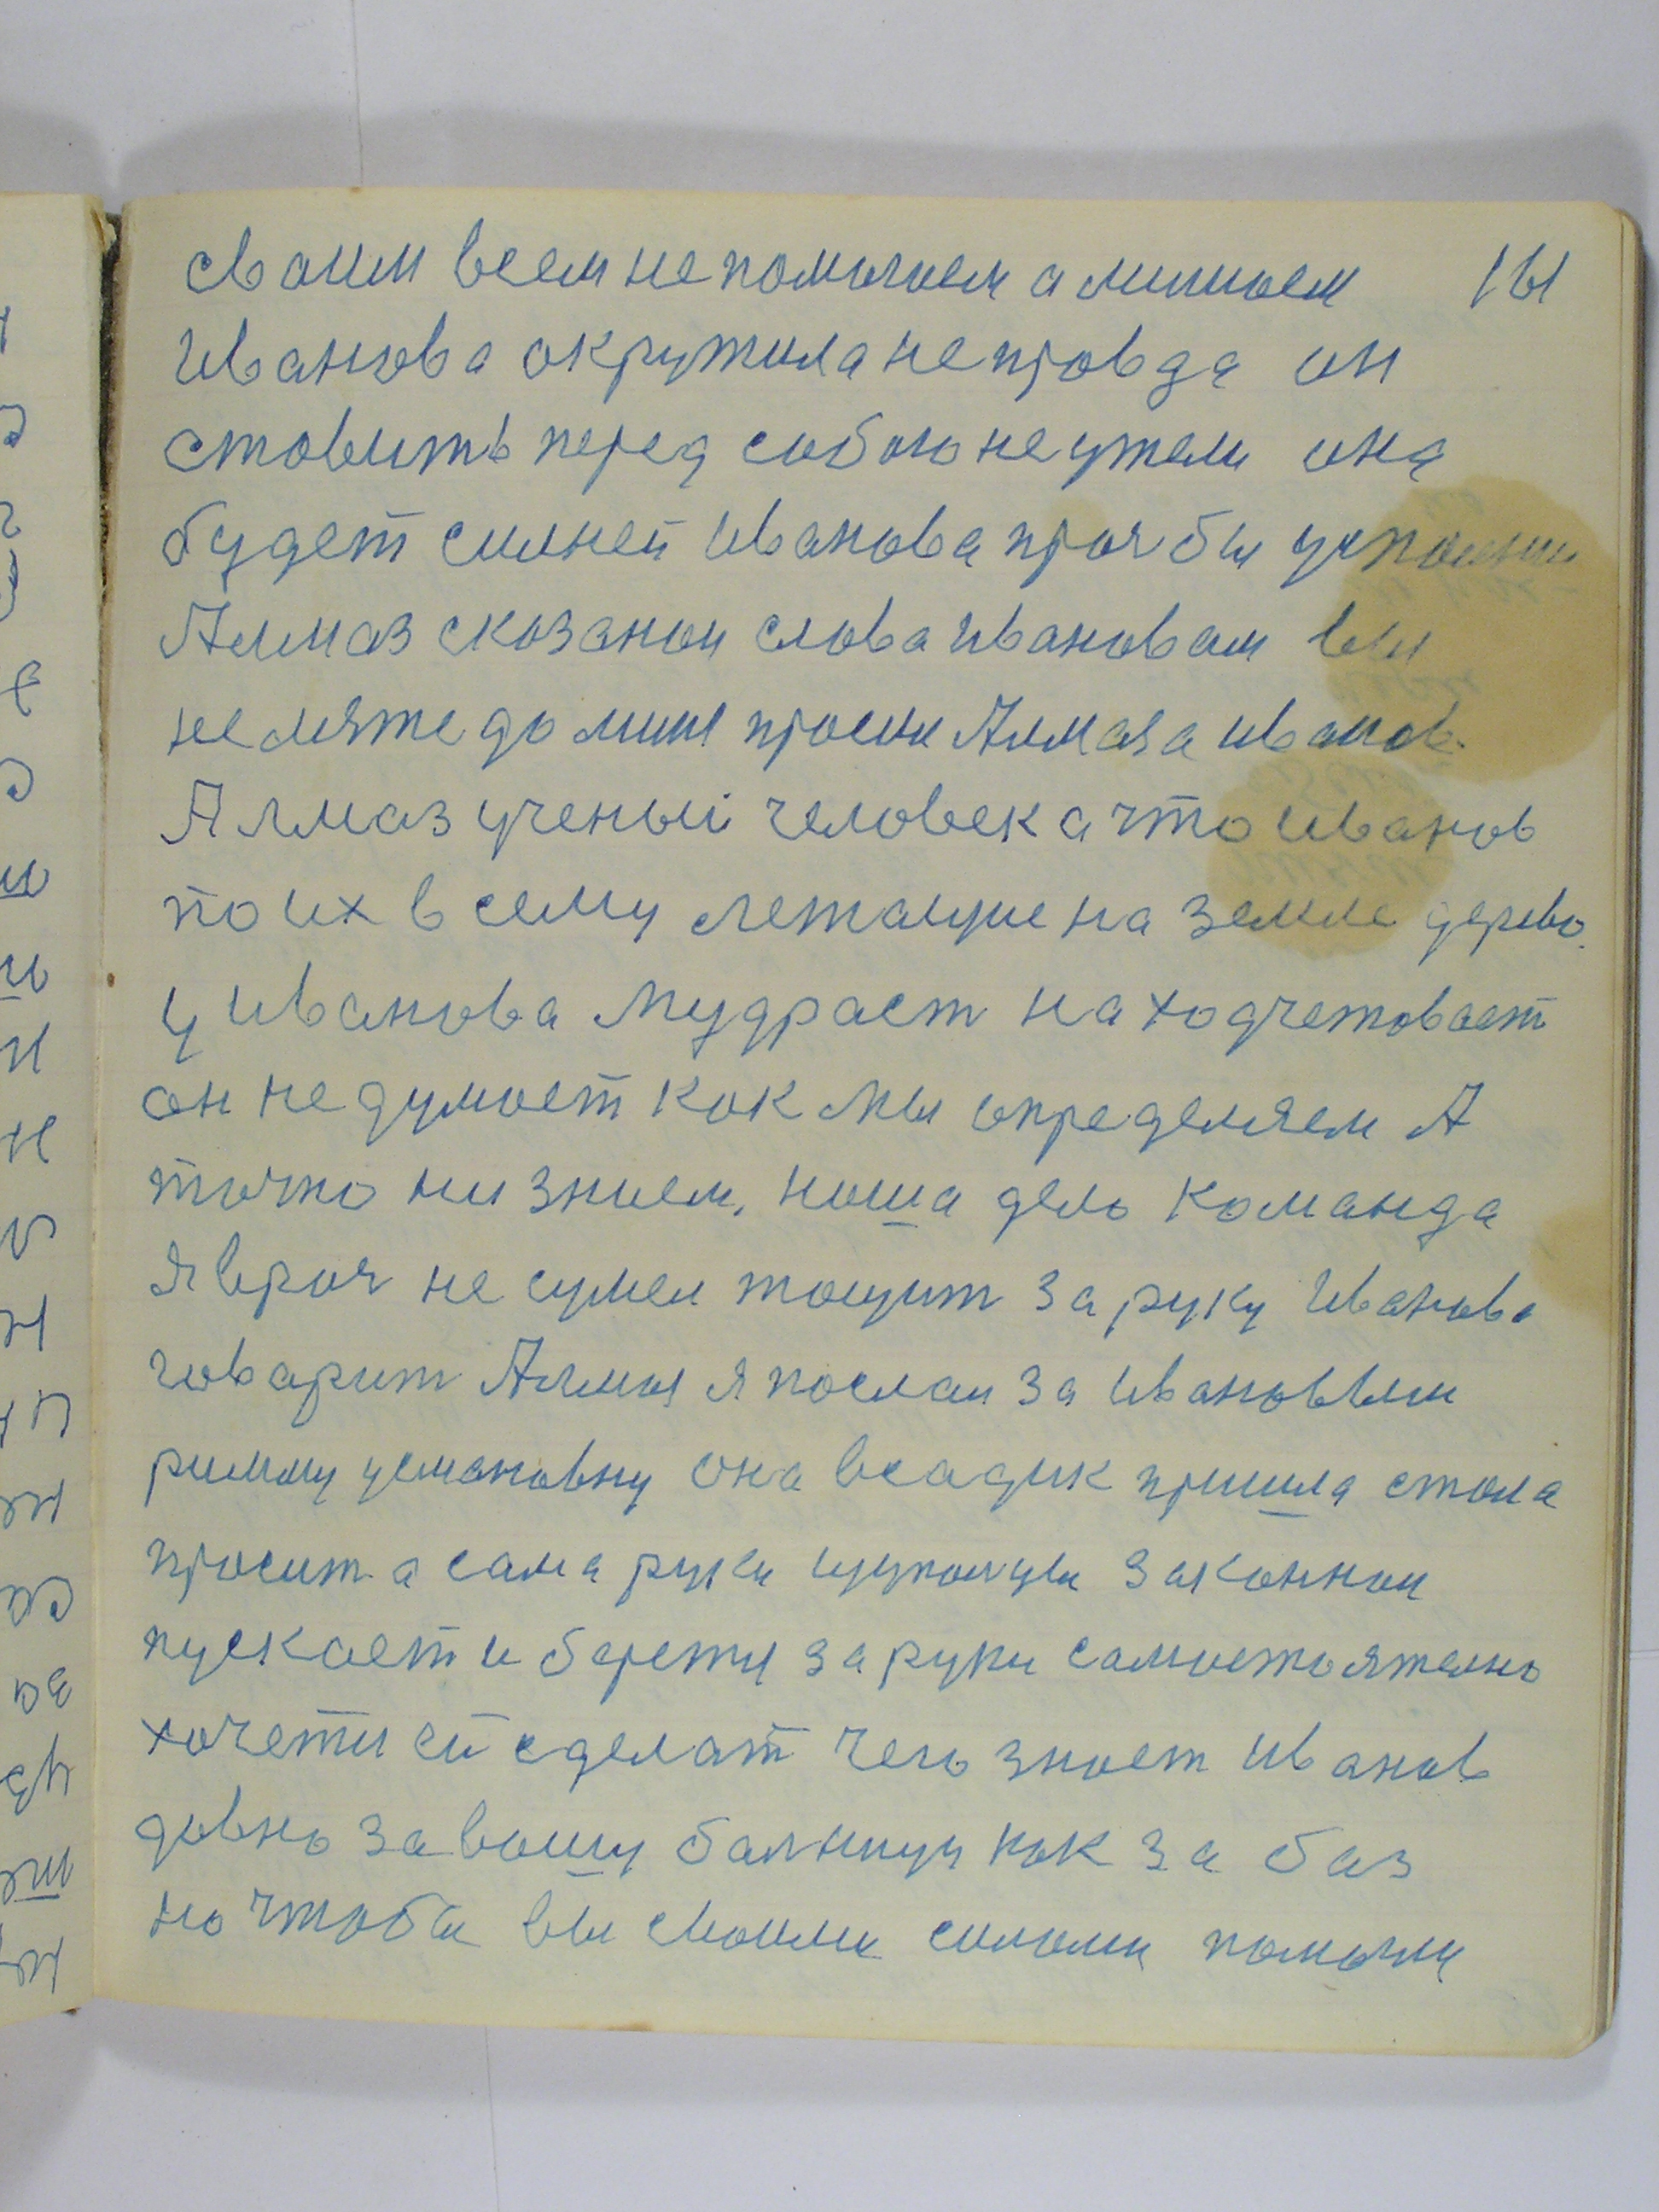 сваим всем непомыгаем а мишаем 161
Иванова акружила неправда ин
ставить перед собою неужели она
будет силней Иванова прозбы успомни
Алмаз сказанаи слова Ивановам вы
нележте до мине просил Алмаза Иванов
Алмаз ученый человек а что Иванов
по их всему лежащие на земле дерево
у Иванова мудраст находчетовает
он не думает как мы определяем А
точно ни знаем, наша дело команда
я врач не сумел тащит за руку Иванова
говарит Алмаз я послал за Ивановым
римму усмановну она всадик пришла стала
просит а сама руки законнои
пускает и бережи за руки самостоятелно
хочети ей сделат чего знает Иванов
давно за вашу балницу как за баз
но чтобы вы своими силами памагли